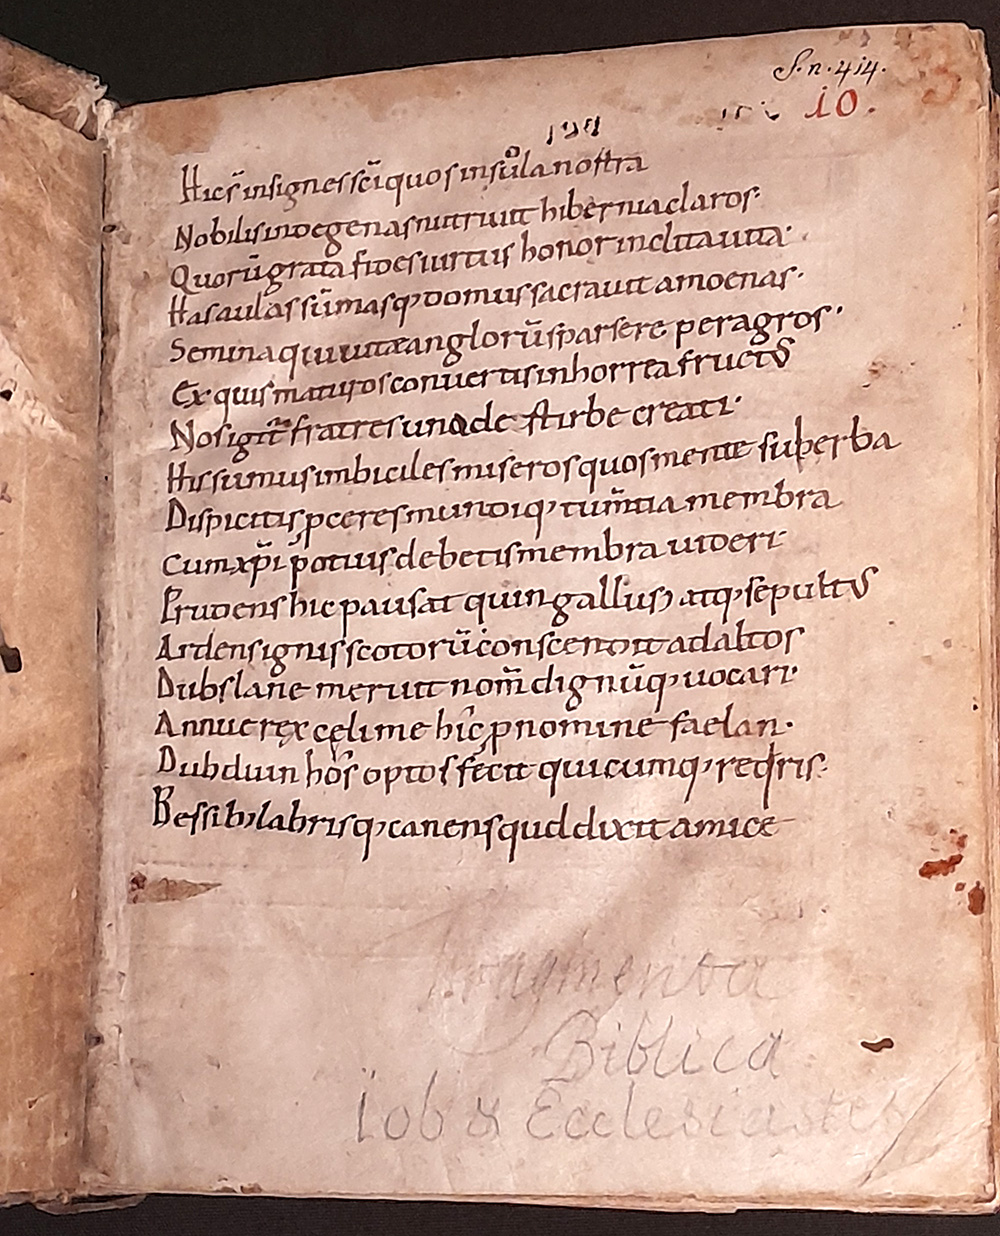 S. n. 414.
10.
Hic s̄ insignes sc̄i quos insula nostra
Nobilis indegenas nutriuit hibernia claros·
Quorū grata fides uirtus honor inclita uita·
Has aulas sūmasq; domus sacrauit amoenas·
Semina qui uitæ anglorū sparsere per agros·
Ex quis maturos conuertis in horrea fructus
Nos igit̄ fratres una de stirbe creati·
His sumus imbiciles miseros quos mente superba
Dispicitis ꝓceres mundiq; tum̄tia membra
Cum xp̄i potius debetis membra uideri·
Prudens hic pausat quin gallus atq; sepultus
Ardens ignis scotorū conscendit ad altos
Dubslane meruit nom̄ dignūq; uocari·
Annue rex cęli me hic ꝓ nomine faelan·
Dubduin hos optos fecit quicumq; reqris·
Bessib; labrisq; canens qud dixit amice
Fragmenta
Biblica
Iob & Ecclesiastes